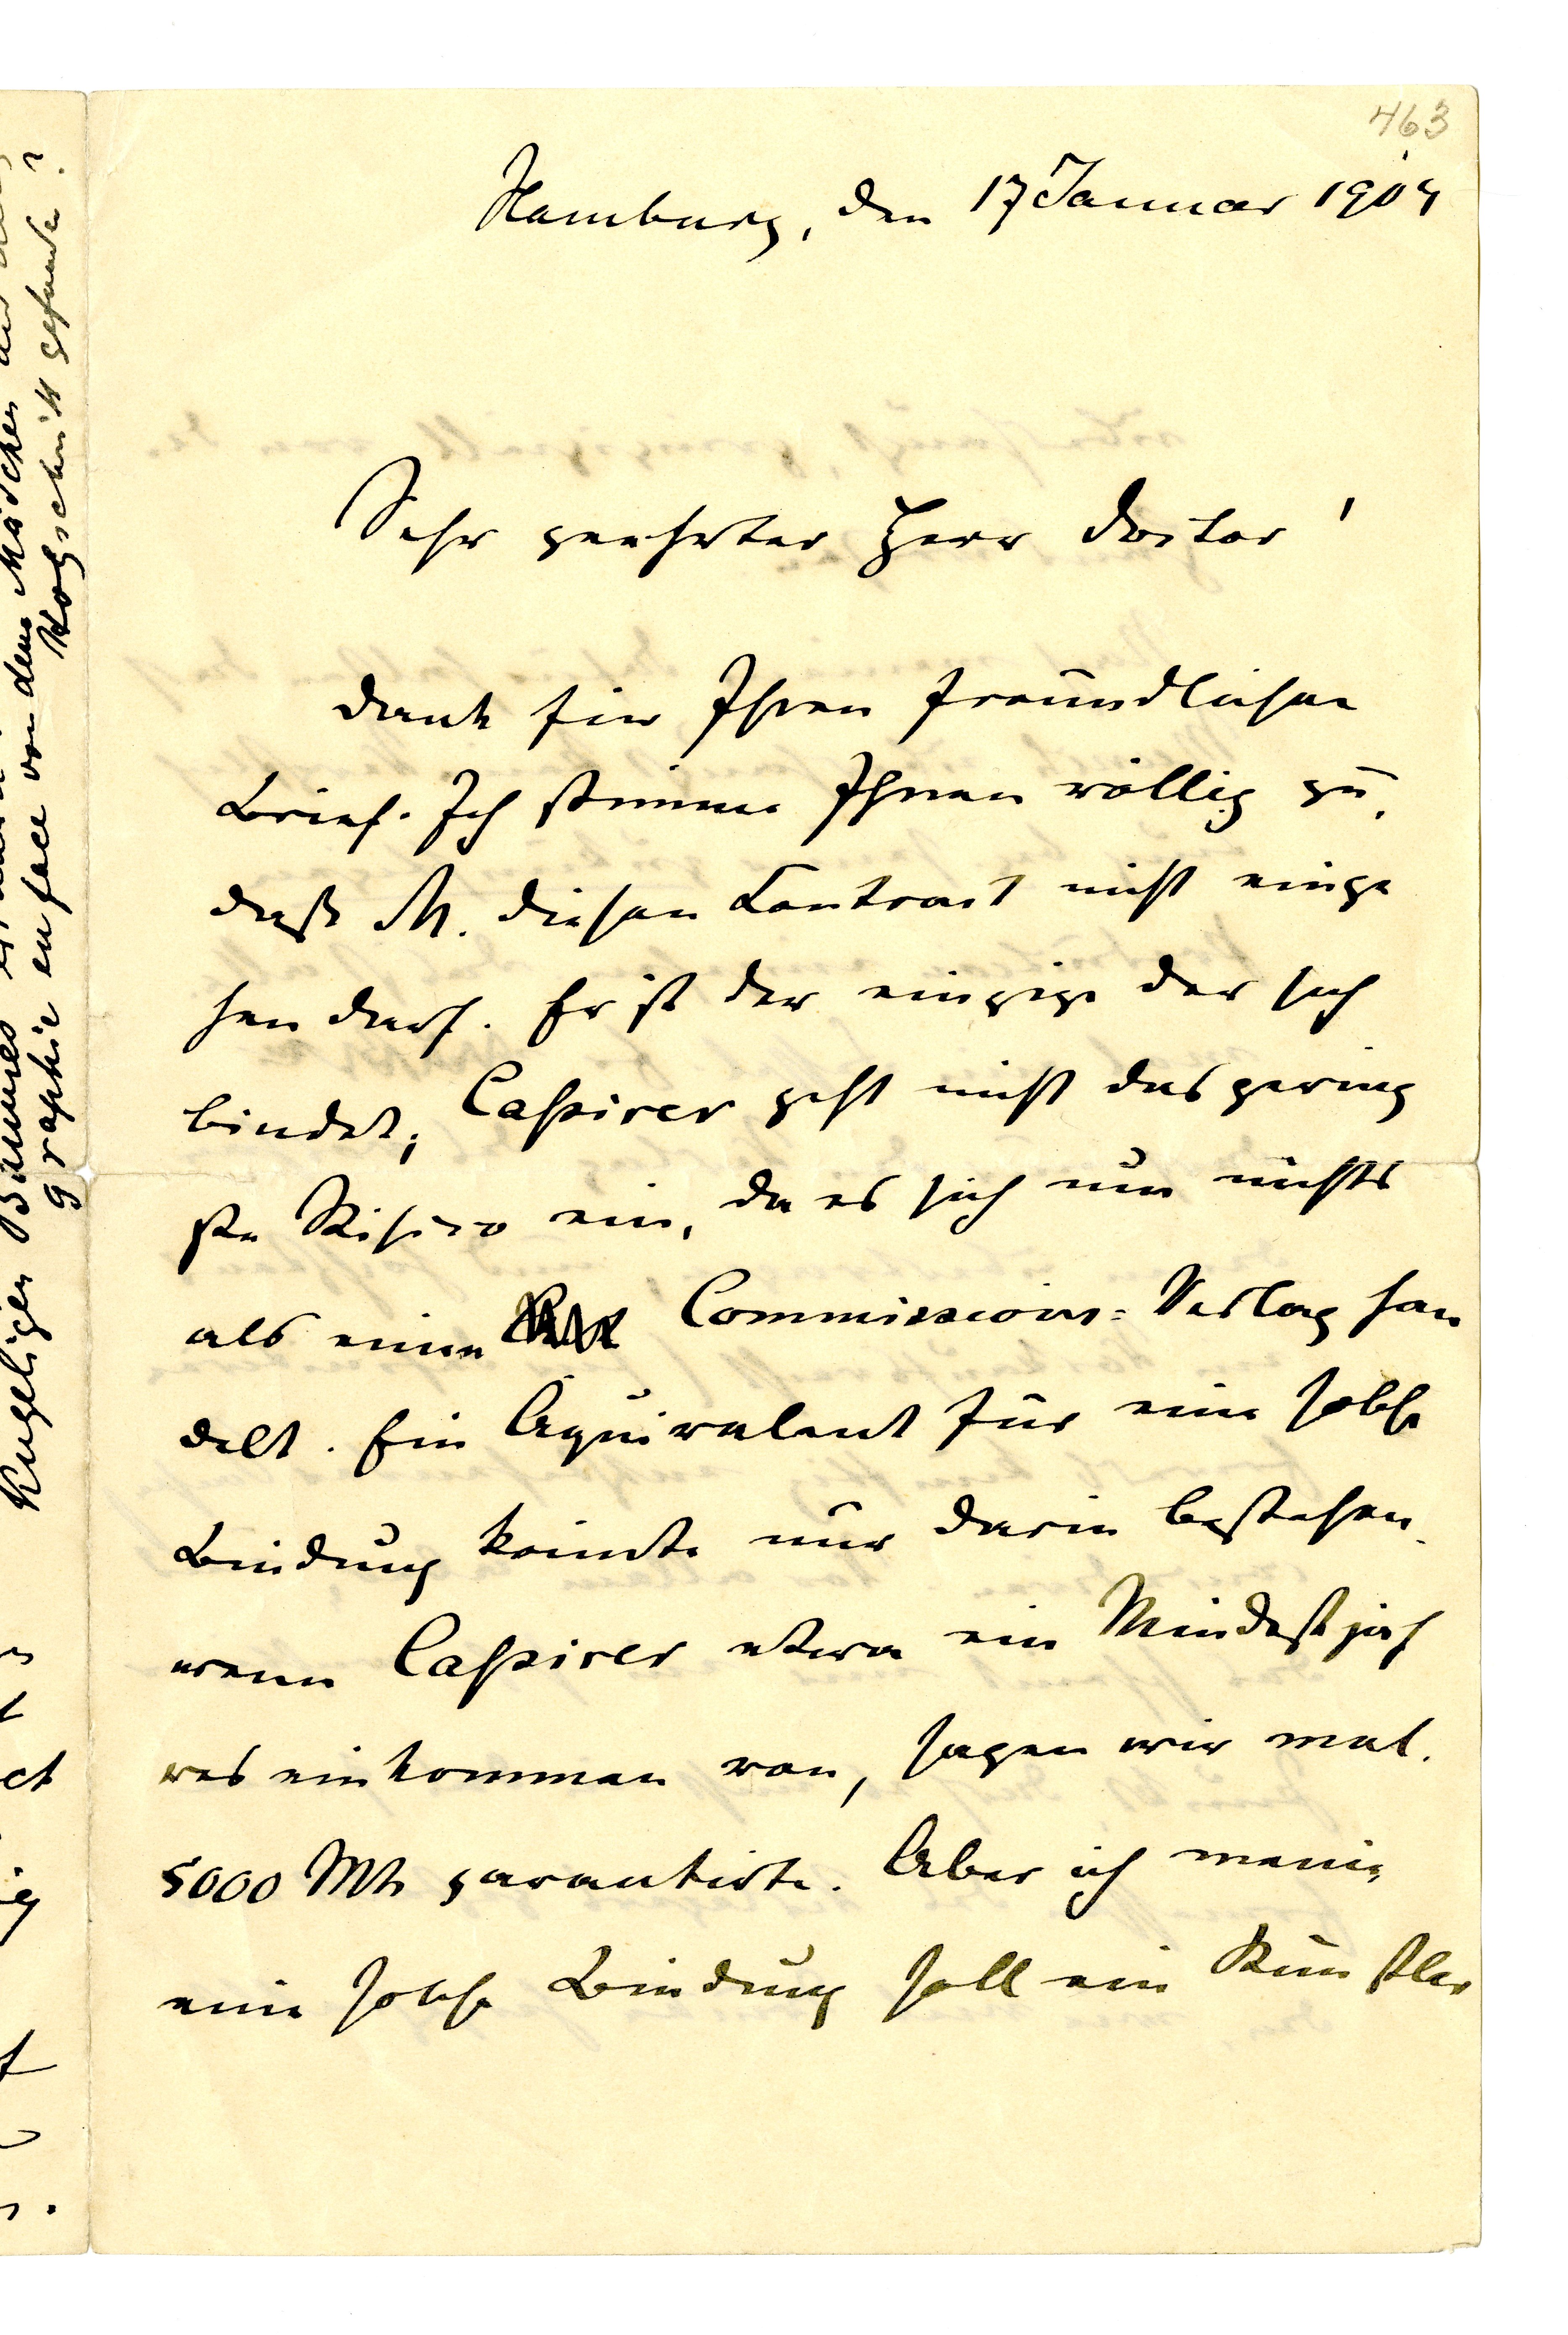 463
Hamburg, den 17 Januar 1904
Sehr geehrter Herr Doctor!
Dank für Ihren freundlichen
Brief. Ich stimme Ihnen völlig zu,
daß M. diesen Contract nicht einge
hen darf. Er ist der einzige der sich
bindet; Cassirer geht nicht das gering
ste Risico ein, da es sich um nichts
als einen Commissions-Verlag han
delt. Ein Äquivalent für eine solche
Bindung könnte nur darin bestehen,
wenn Cassirer etwa ein Mindestjah
reseinkommen von, sagen wir mal.
5000 Mk garantirte. Aber ich meine,
eine solche Bindung soll ein Künstler
Kugeliger Baumes dem Mädchen
graphie en face von
Holzschnitt gefunden?